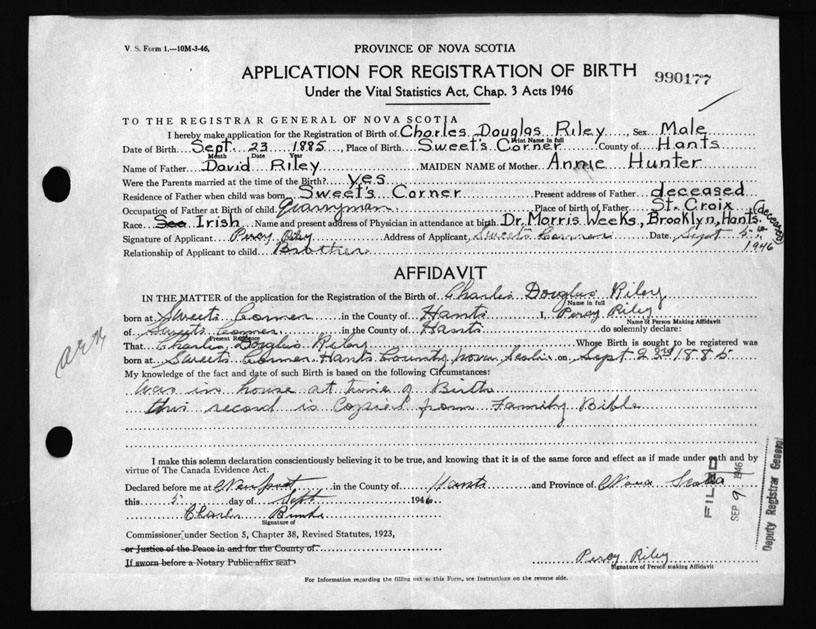 V. S. Form 1.—10M-3-46,
PROVINCE OF NOVA SCOTIA
APPLICATION FOR REGISTRATION OF BIRTH
990177
Under the Vital Statistics Act, Chap. 3 Acts 1946
TO THE REGISTRAR GENERAL OF NOVA SCOTIA
I hereby make application for the Registration of Birth of Charles Douglas Riley, Sex Male
Print Name in full
Date of Birth Sept. 23 1885, Place of Birth Sweet's Corner County of Hants
Month Date Year
Name of Father David Riley MAIDEN NAME of Mother Annie Hunter
Were the Parents married at the time of the Birth? yes
Residence of Father when child was born Sweet's Corner Present address of Father deceased
Occupation of Father at Birth of child Quarryman Place of birth of Father St. Croix
Race Sco Irish Name and present address of Physician in attendance at birth Dr. Morris Weeks, Brooklyn, Hants. (deceased)
Signature of Applicant Percy Riley Address of Applicant Sweets Corner Date Sept 5, 1946
Relationship of Applicant to child Brother
AFFIDAVIT
IN THE MATTER of the application for the Registration of the Birth of Charles Douglas Riley
Name in full
born at Sweets Corner in the County of Hants I, Percy Riley
Name of Person Making Affidavit
of Sweets Corner in the County of Hants do solemnly declare:
Present Residence
That Charles Douglas Riley Whose Birth is sought to be registered was
born at Sweets Corner Hants County Nova Scotia on Sept 23rd 1885
My knowledge of the fact and date of such Birth is based on the following Circumstances:
Was in house at time of Birth
this record is Copied from Family Bible
I make this solemn declaration conscientiously believing it to be true, and knowing that it is of the same force and effect as if made under oath and by
virtue of The Canada Evidence Act.
Declared before me at Newport in the County of Hants and Province of Nova Scotia
this 5 day of Sept 1946
Charles
Signature of
Commissioner under Section 5, Chapter 38, Revised Statutes, 1923,
or Justice of the Peace in and for the County of
If sworn before a Notary Public affix seal
Percy Riley
Signature of Person making Affidavit
For Information regarding the filling out of this Form, see Instructions on the reverse side.
FILED
SEP 9 1946
Deputy Registrar General